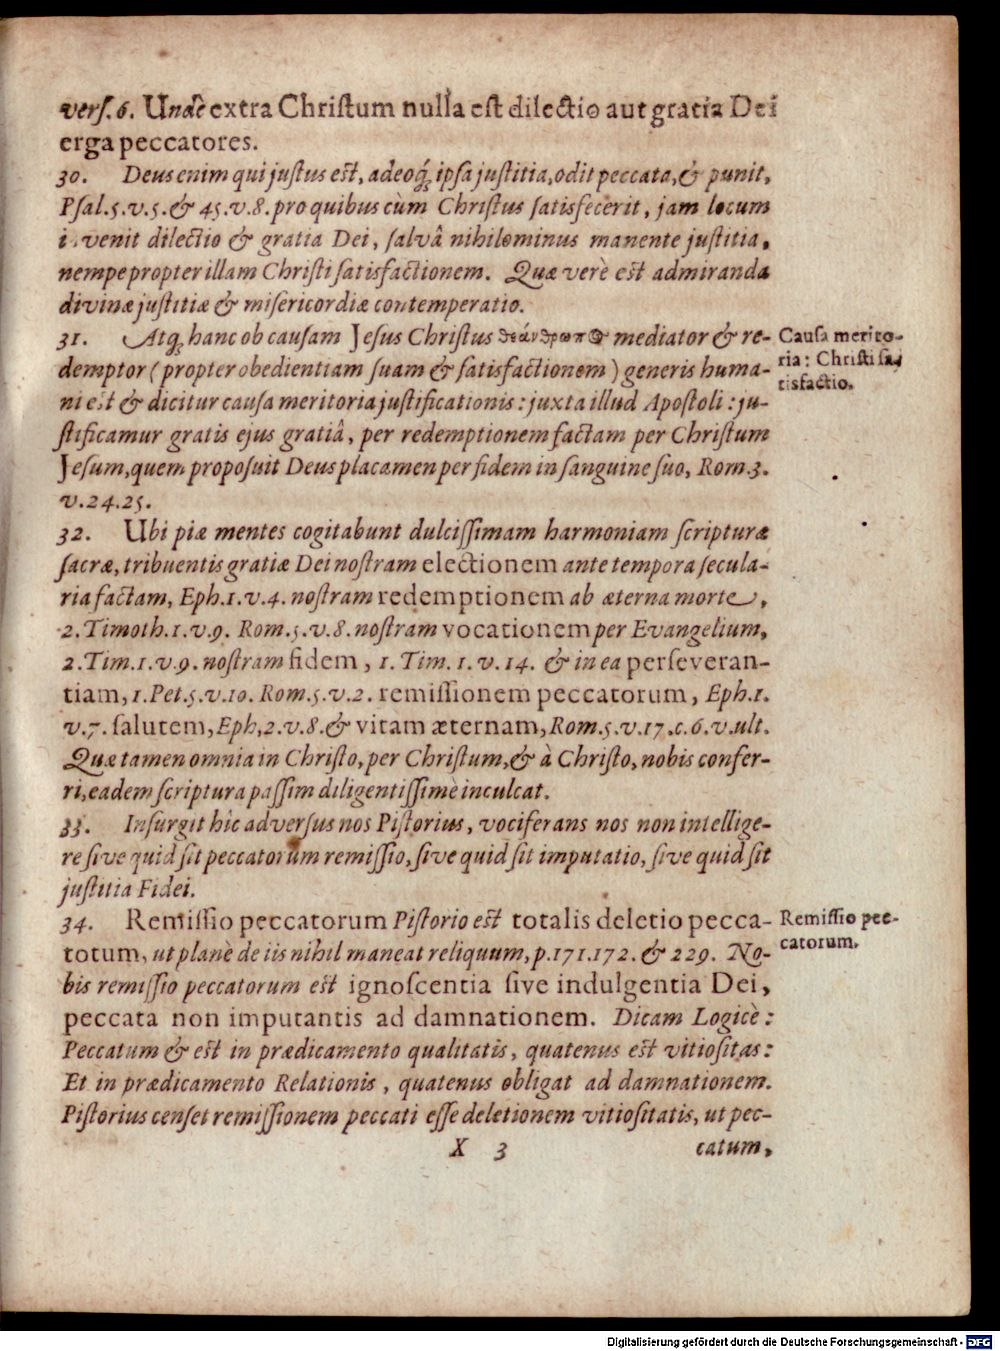 verſ. 6. Unde extra Chriſtum nulla eſt dilectio aut gratia Dei
erga peccatores.
30. Deus enim qui juſtus eſt, adeoq́; ipſa juſtitia, odit peccata, & punit,
Pſal. 5. v. 5. & 45. v. 8. pro quibus cùm Chriſtus ſatisfecerit, jam locum
invenit dilectio & gratia Dei, ſalvâ nihilominus manente juſtitia,
nempe propter illam Chriſti ſatisfactionem. Quæ verè eſt admiranda
divinæ juſtitiæ & miſericordiæ contemperatio.
31. Atq́; hanc ob cauſam Jeſus Chriſtus θεάνθρωπος mediator & re-
demptor (propter obedientiam ſuam & ſatisfactionem) generis huma-
ni eſt & dicitur cauſa meritoria juſtificationis: juxta illud Apoſtoli: ju-
ſtificamur gratis ejus gratiâ, per redemptionem factam per Chriſtum
Jeſum, quem propoſuit Deus placamen per fidem in ſanguine ſuo, Rom. 3.
v. 24. 25.
Cauſa merito-
ria: Chriſti ſa-
tisfactio.
32. Ubi piæ mentes cogitabunt dulciſſimam harmoniam ſcripturæ
ſacræ, tribuentis gratiæ Dei noſtram electionem ante tempora ſecula-
ria factam, Eph. 1. v. 4. noſtram redemptionem ab æterna morte,
2. Timoth. 1. v. 9. Rom. 5. v. 8. noſtram vocationem per Evangelium,
2. Tim. 1. v. 9. noſtram fidem, 1. Tim. 1. v. 14. & in ea perſeveran-
tiam, 1. Pet. 5. v. 10. Rom. 5. v. 2. remiſſionem peccatorum, Eph. 1.
v. 7. ſalutem, Eph, 2. v. 8. & vitam æternam, Rom. 5. v. 17. c. 6. v. ult.
Quæ tamen omnia in Chriſto, per Chriſtum, & à Chriſto, nobis confer-
ri, eadem ſcriptura paſſim diligentiſſimè inculcat.
33. Inſurgit hîc adverſus nos Piſtorius, vociferans nos non intellige-
re ſive quid ſit peccatorum remiſſio, ſive quid ſit imputatio, ſive quid ſit
juſtitia Fidei.
34. Remiſſio peccatorum Piſtorio eſt totalis deletio pecca-
totum, ut planè de iis nihil maneat reliquum, p. 171. 172. & 229. No-
bis remiſſio peccatorum eſt ignoſcentia ſive indulgentia Dei,
peccata non imputantis ad damnationem. Dicam Logicè:
Peccatum & eſt in prædicamento qualitatis, quatenus eſt vitioſitas:
Et in prædicamento Relationis, quatenus obligat ad damnationem.
Piſtorius cenſet remiſſionem peccati eſſe deletionem vitioſitatis, ut pec-
Remiſſio pec-
catorum.
X 3 catum,
Digitalisierung gefördert durch die Deutsche Forschungsgemeinschaft - DFG